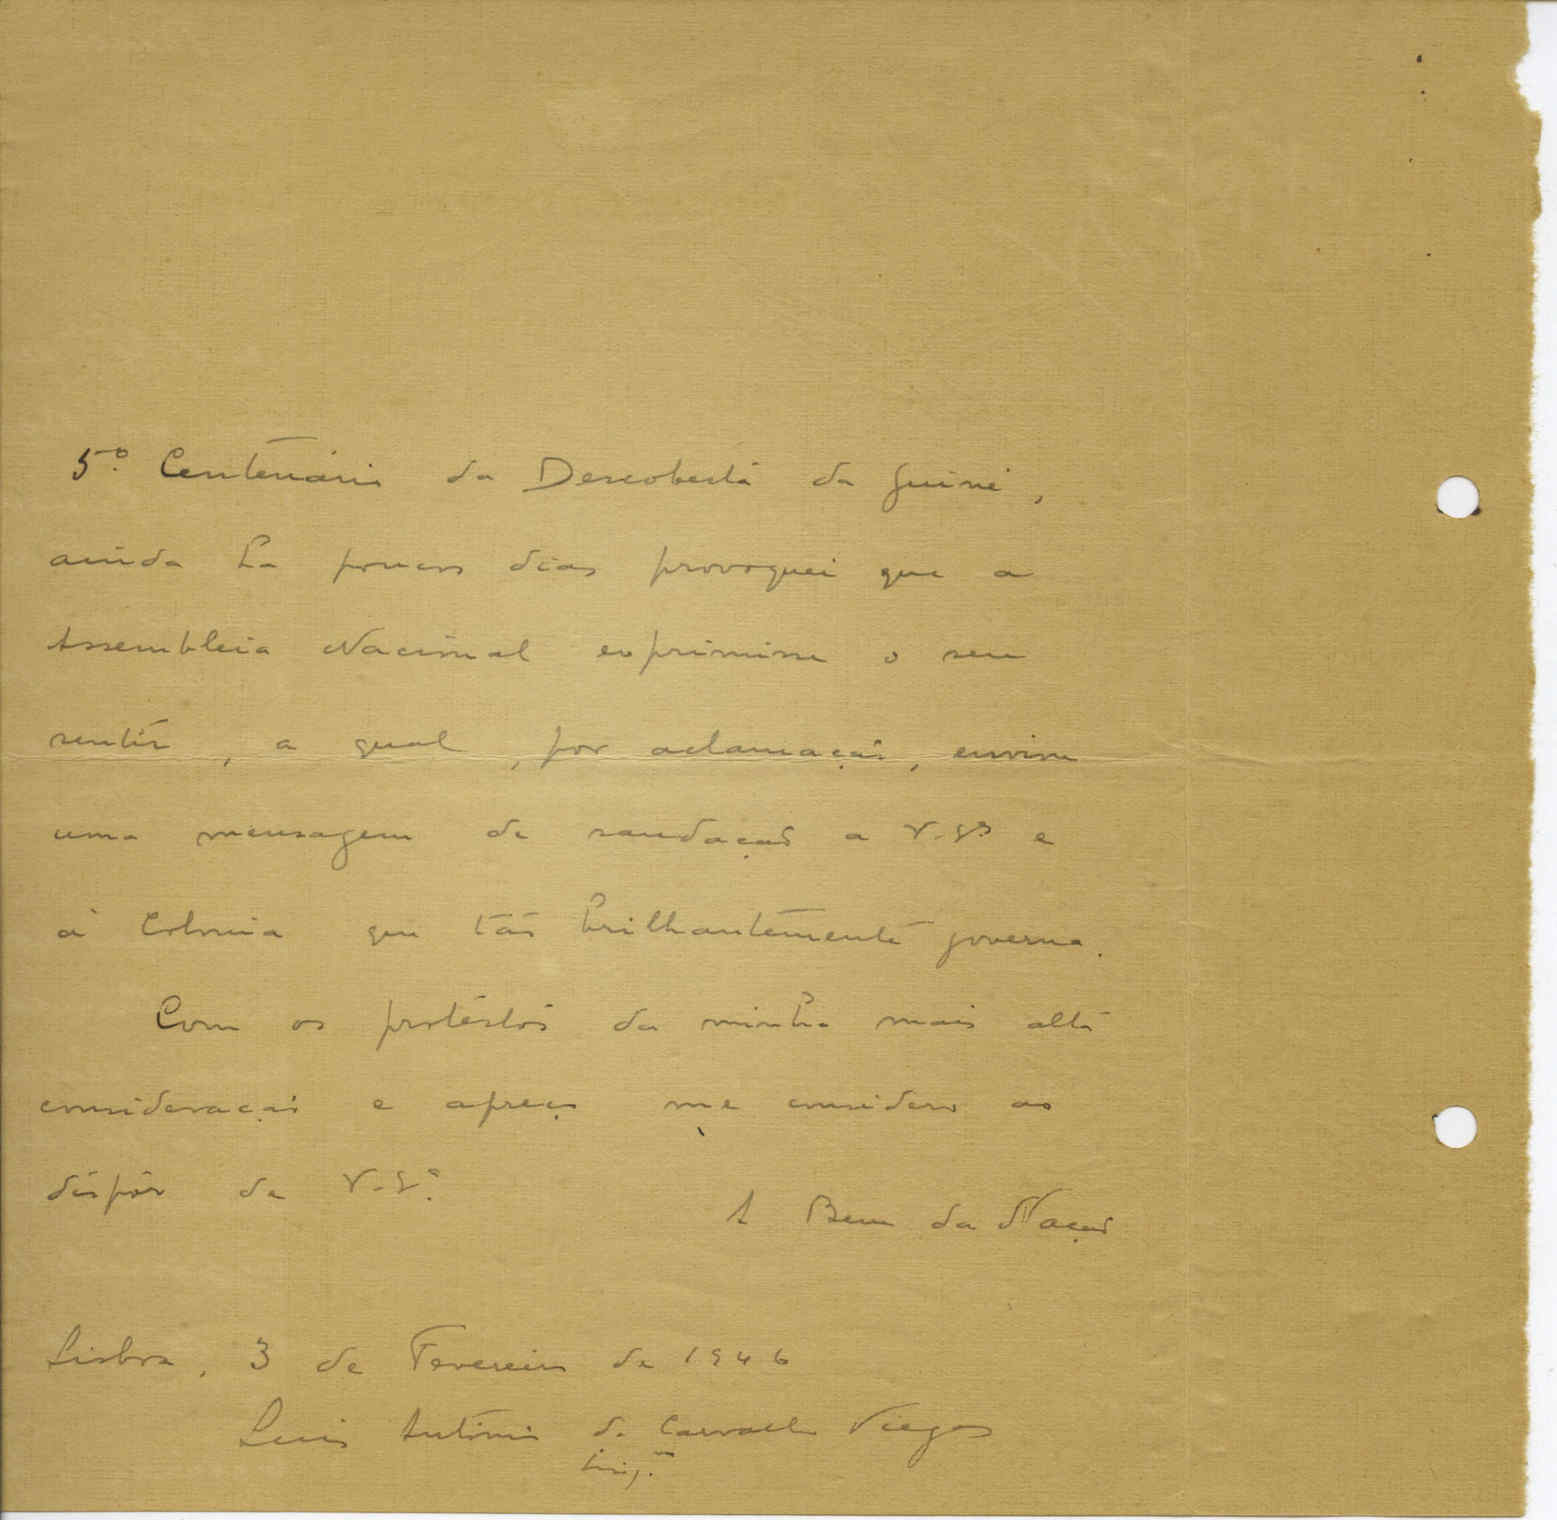 5º Centenário da Descoberta da Guiné,
ainda ha poucos dias provoquei que a
Assembleia Nacional exprimisse o seu
sentir, a qual, por aclamação, enviou
uma mensagem de saudação a V. Ex.ª e
à Colonia que tão brilhantemente governa.
Com os protéstos da minha mais alta
consideração e apreço me considero ao
dispôr de V. Ex.ª
A Bem da Nação
Lisboa, 3 de Fevereiro de 1946
Luis António de Carvalho Viegas